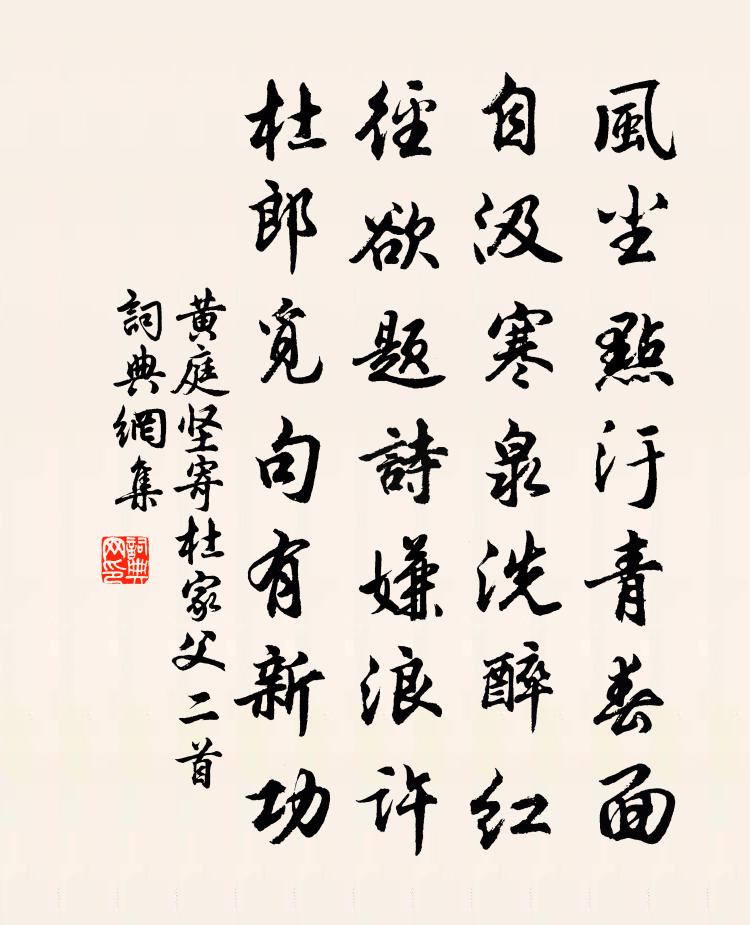 風塵點汙青春面
自汲寒泉洗醉紅
徑欲題詩嫌浪許
杜郎覓句有新功
黄庭坚寄杜家父二首
詞典網集
詞典网印